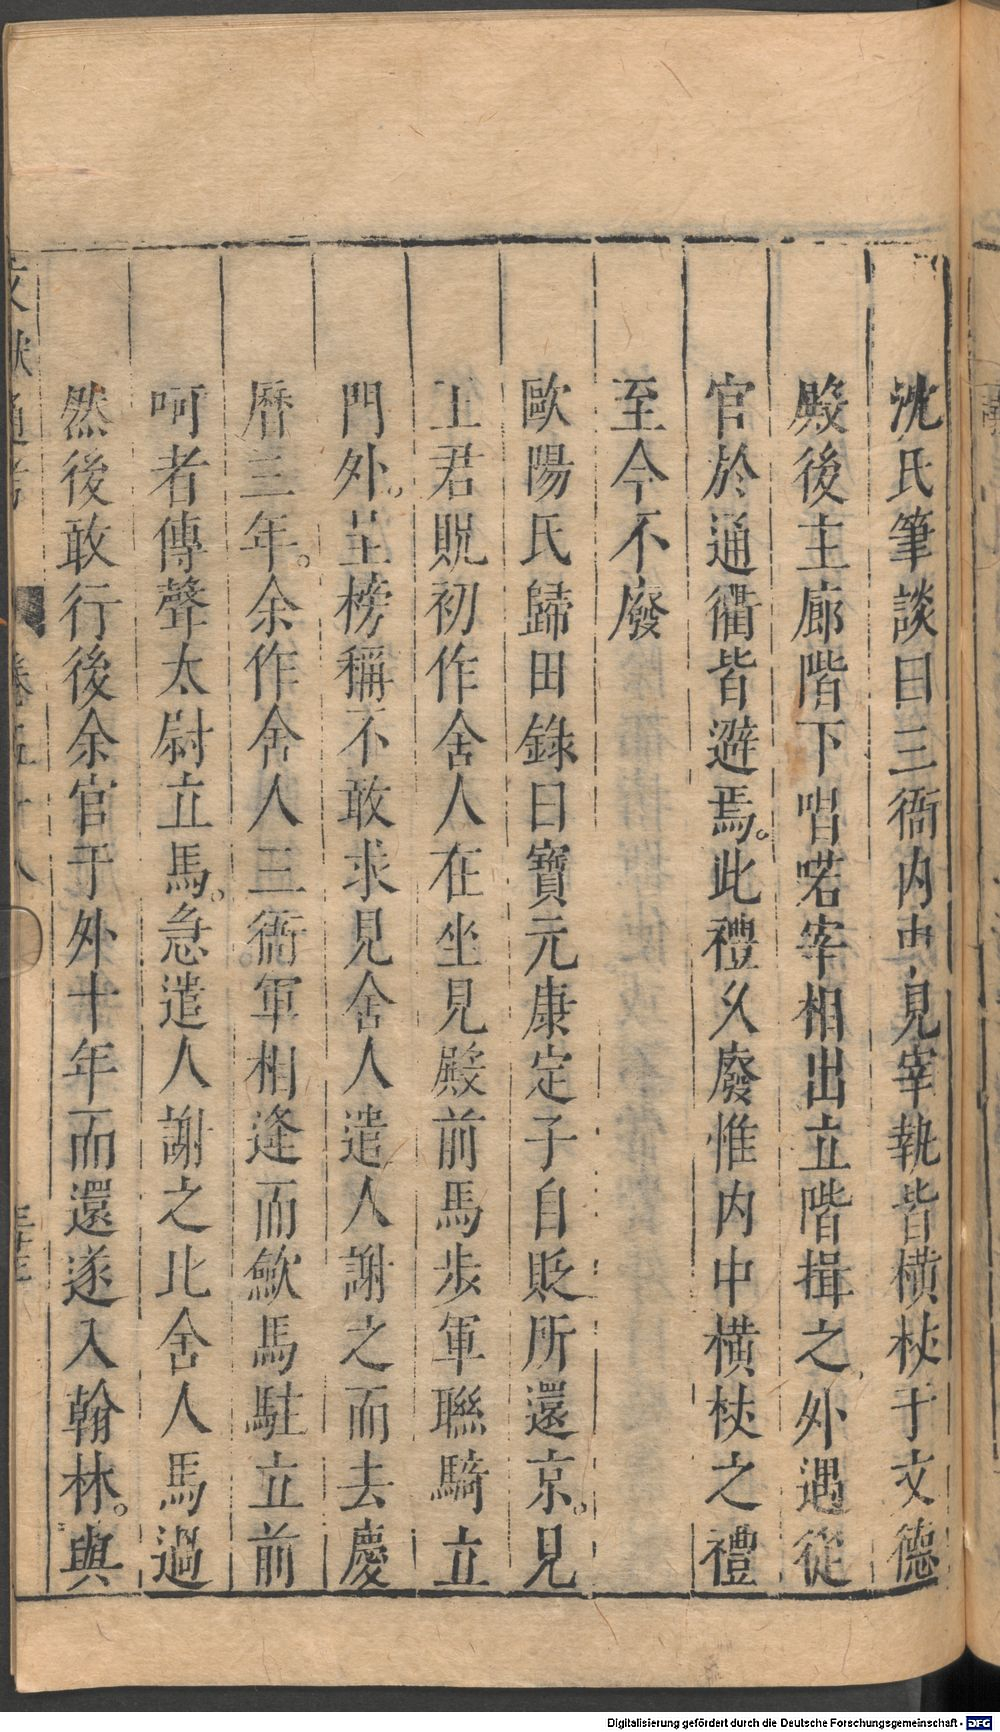 沈氏筆談曰三衙内見宰執皆横杖于文德
殿後主廊階下唱喏宰相出立階揖之外遇從
官於通衢皆避焉。此禮久廢惟内中横杖之禮
至今不廢
歐陽氏歸田錄曰寶元康定子自貶所還京。見
王君貺初作舍人在坐見殿前馬步軍聯騎立
門外。呈榜稱不敢求見舍人遣人謝之而去慶
曆三年。余作舍人三衙軍相逢而歛馬駐立前
呵者傳聲太尉立馬。急遣人謝之比舍人馬過
然後敢行後余官于外十年而還遂入翰林。與
文獻通考 卷五十八
Digitalisierung gefördert durch die Deutsche Forschungsgemeinschaft - DFG